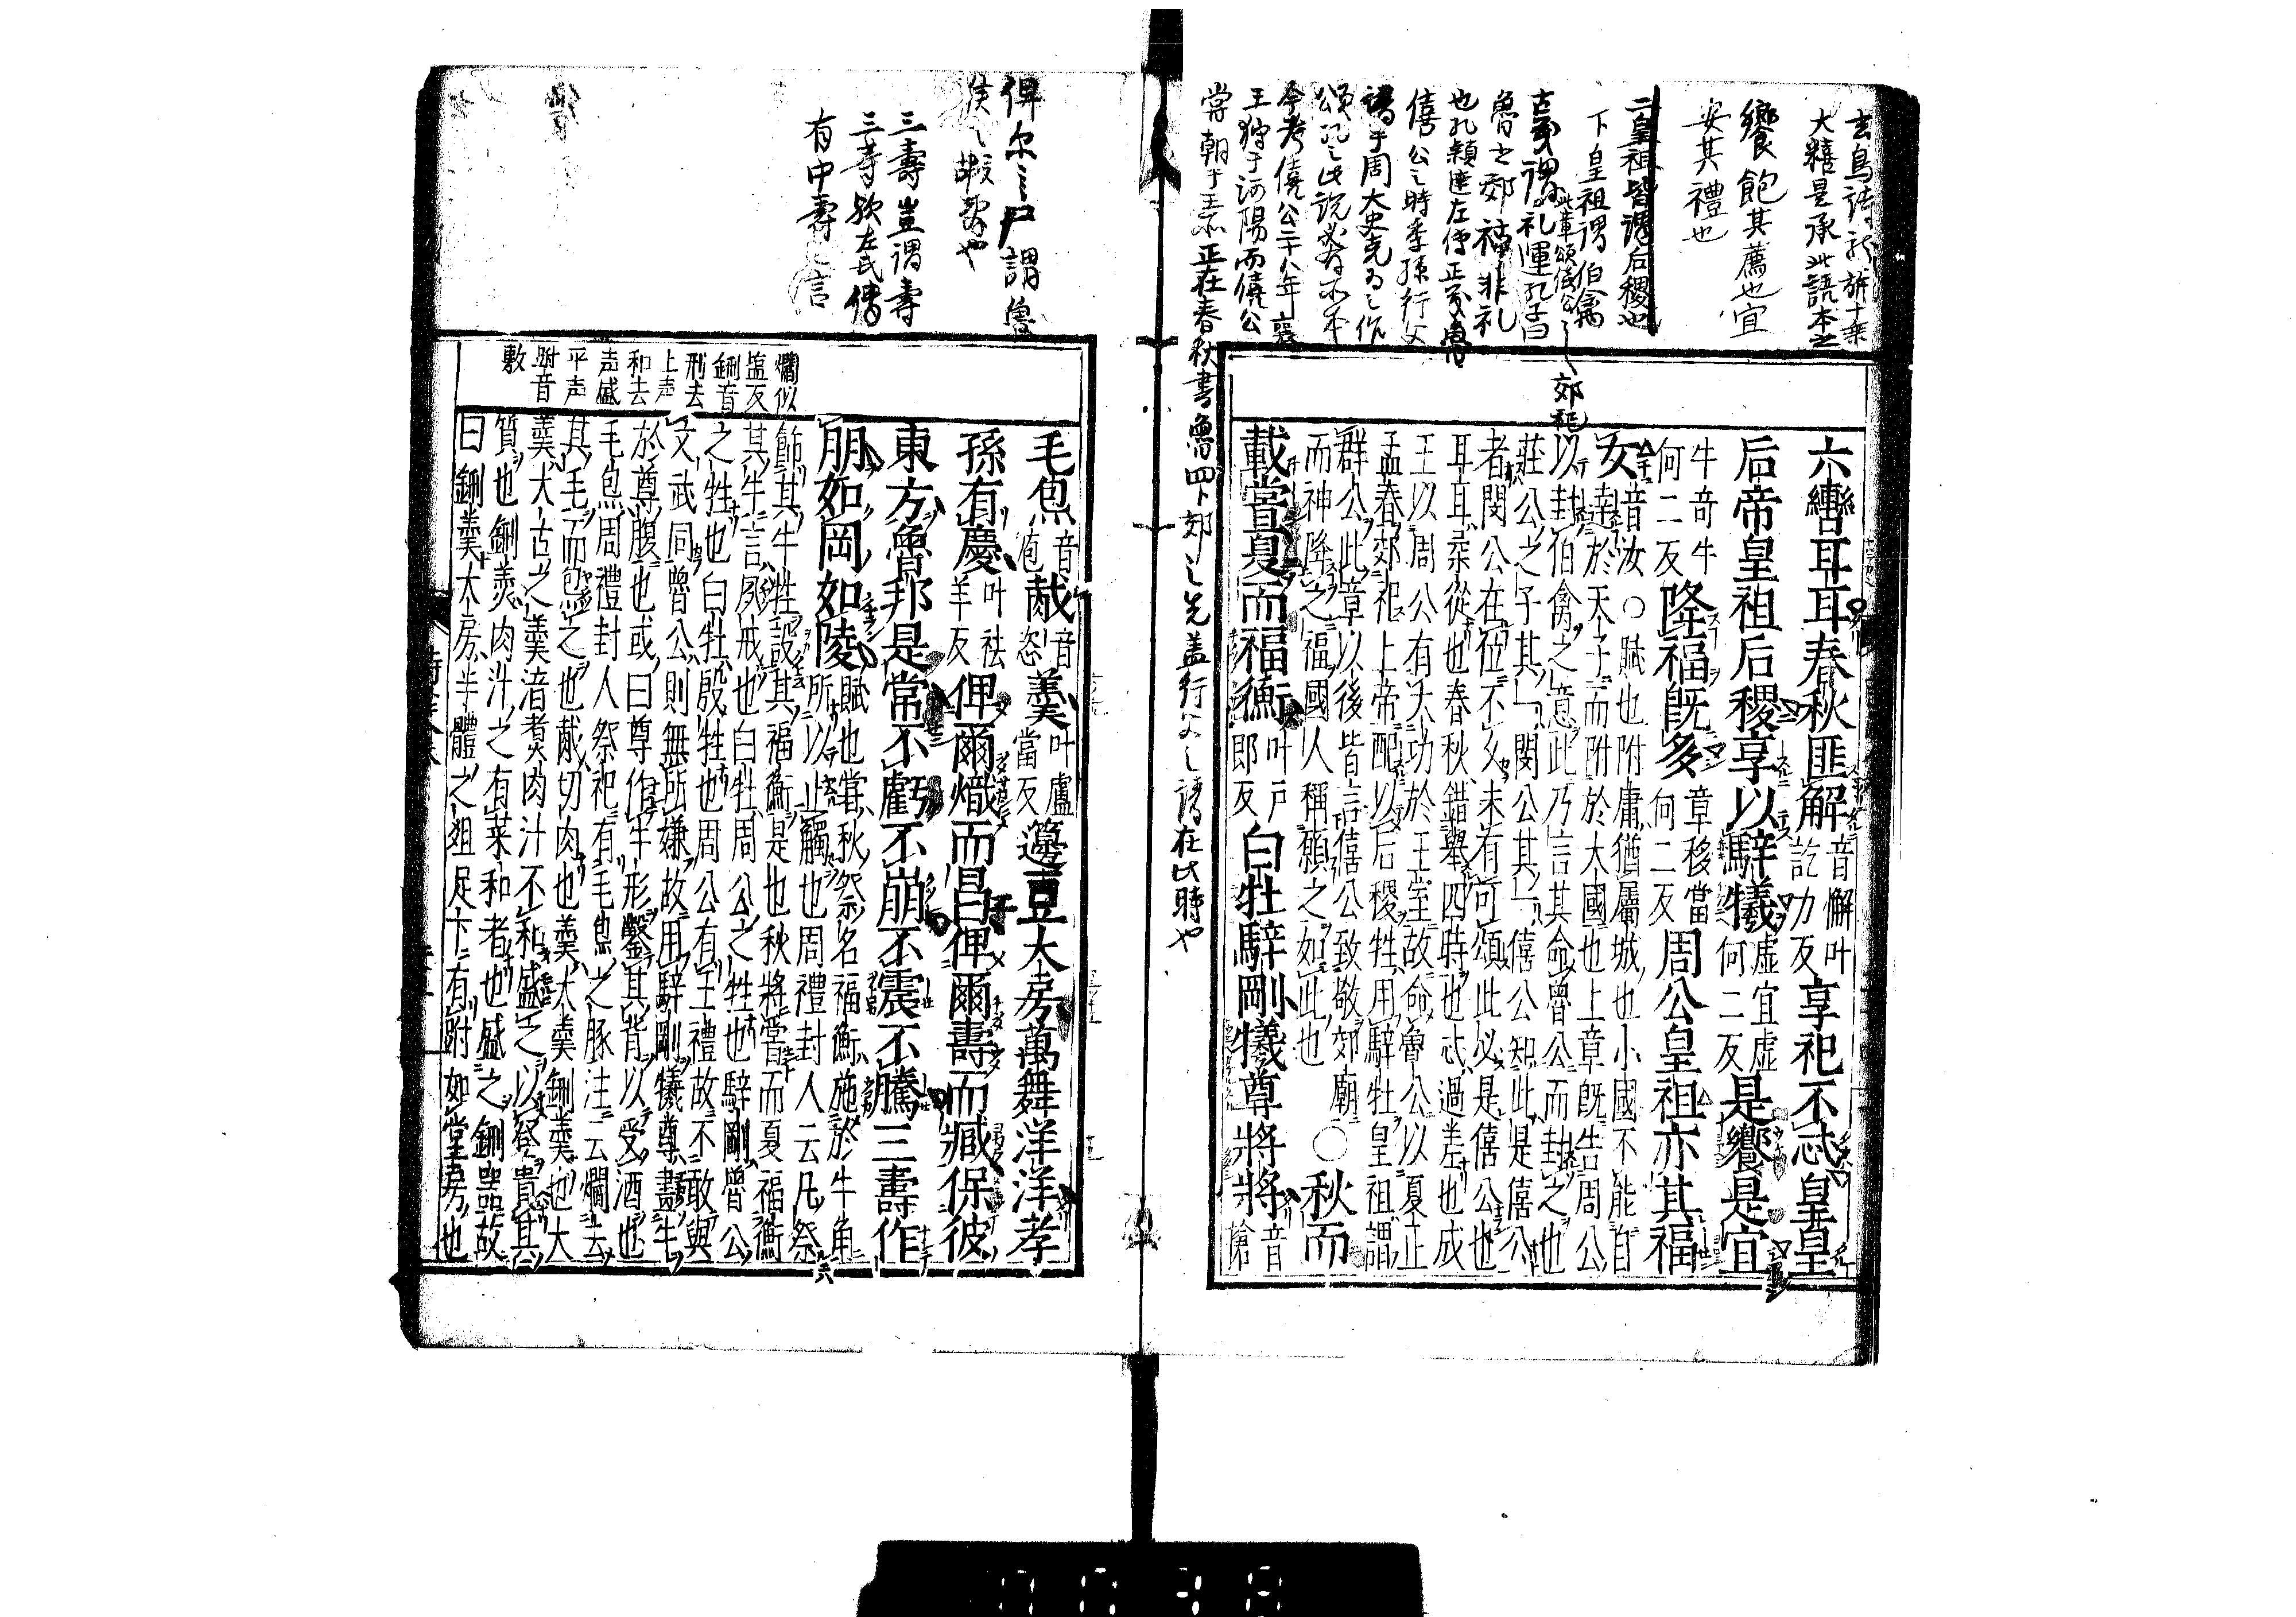 玄鳥詩龍旂十乗
大糦是承此語本之
饗飽其薦也宜
安其禮也
二皇祖皆謂后稷也
下皇祖謂伯禽
此章頌僖公之郊祀
古義謂礼運孔子曰
魯之郊禘非礼
也孔穎達左傳正義魯
僖公之時季孫行父
請于周大史克為之作
頌孔之此說必有所本
今考僖公二十八年襄
王狩于河陽而僖公
嘗朝于王所正在春秋書魯四卜郊之先盖行父之請在此時也
六轡耳耳春秋匪解音懈叶訖力反享祀不忒皇皇
后帝皇祖后稷享以騂犧虛宜虛何二反是饗是宜
牛奇牛何二反降福既多章移當何二反周公皇祖亦其福
女音汝○賦也附庸猶屬城也小國不能自
達於天子而附於大國也上章既告周公
以封伯禽之意此乃言其命魯公而封之也
莊公之子其一閔公其一僖公知此是僖公
者閔公在位不久未有可頌此必是僖公也
耳耳柔從也春秋錯舉四時也忒過差也成
王以周公有大功於王室故命魯公以夏正
孟春郊祀上帝配以后稷牲用騂牡皇祖謂
群公此章以後皆言僖公致敬郊廟
而神降之福國人稱願之如此也○秋而
載嘗夏而福衡叶戶郎反白牡騂剛犧尊將將音槍
俾尔之尸謂魯
侯之嘏辞也
三壽豈謂壽
三等欤左氏傳
有中壽之言
爓似
盐反
鉶音
刑去
上声
和去
声盛
平声
跗音
敷
毛炰音庖胾音恣羹叶盧當反籩豆大房萬舞洋洋孝
孫有慶叶祛羊反俾爾熾而昌俾爾壽而臧保彼
東方魯邦是常不虧不崩不震不騰三壽作
朋如岡如陵賦也嘗秋祭名福衡施於牛角
所以止觸也周禮封人云凡祭
飾其牛牲設其福衡是也秋將嘗而夏福衡
其牛言夙戒也白牡周公之牲也騂剛魯公
之牲也白牡殷牲也周公有王禮故不敢與
文武同魯公則無所嫌故用騂剛犧尊畫牛
於尊腹也或曰尊作牛形鑿其背以受酒也
毛炰周禮封人祭祀有毛炰之豚注云爓去
其毛而炰之也胾切肉也羹大羹鉶羹也大
羹大古之羹湆煮肉汁不和盛之以登貴其
質也鉶羹肉汁之有菜和者也盛之鉶器故
曰鉶羹大房半體之俎足下有跗如堂房也